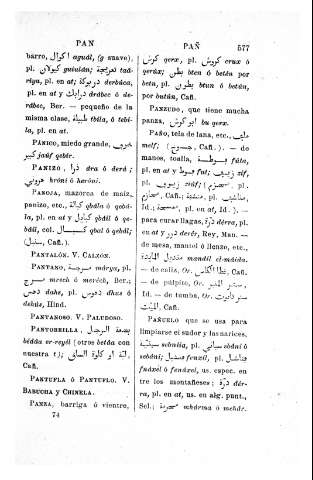 PAN
PAÑ
577
barro, اكوال aguál, (g suave),
pl. كيولان guiulán; تعاريجة taä-
riya, pl. en at; دربوكة derbúca,
pl. en at y درابك drábec ó de-
rdbec, Ber. — pequeño de la
misma clase, طبيلة tbila, ó tebi-
la, pl. en at.
PÁNICO, miedo grande,
كبير jáuf qebír.
PANIZO, ذرا dra ó derá;
hróni ó haróni.
PANOJA, mazorca de maíz,
panizo, etc., كبالة qbála ó qebá-
la, pl. en at y كبايل qbáil ó qe-
báil, col. كبال qbal ó qebál;
(سنبل, Cañ.).
PANTALÓN. V. CALZÓN.
PANTANO, مرجة márya, pl.
مروج meroch ó meróch, Ber.;
دهس dahs, pl. دهوس dhus ó
dehús, Hind.
PANTANOSO. V. PALUDOSO.
PANTORRILLA, بضعة الرجل
bédda er-reyél (otros betda con
nuestra t);
Cañ.
PANTUFLA ó PANTUFLO. V.
BABUCHA y CHINELA.
PANZA, barriga ó vientre,
74
كرش qerx, pl. كروش crux ó
qerúx; بطن bten ó betén por
beta, pl. بطون btun ó betún,
por butún, Cañ.
PANZUDO, que tiene mucha
panza, ابو كرش bu qerx.
PAÑO, tela de lana, etc., ملف
melf; Cañ.). — de
manos, toalla, فوطة fúta,
pl. en at y فوط fut; زيف zif,
pl. زيوف ziúf;
Cañ., pl.
Id.; pl. en at, Id.). —
para curar llagas, درة dérra, pl.
en at y درر derér, Rey, Mau. —
de mesa, mantel ó lienzo, etc.,
منديل المايدة mandil el-máida.
— de caliz, Or.
— de púlpito, Or.
Id. — de tumba, Or.
Cañ.
PAÑUELO que se usa para
limpiarse el sudor y las narices,
سبنية sebníia, pl. سباني sbáni ó
sebáni; فنزيل fenzil, pl.
fnázel ó fenázel, us. espec. en-
tre los montañeses; درة dér-
ra, pl. en at, us. en alg. punt.,
Sel.; محرمة mehárma ó mehár-